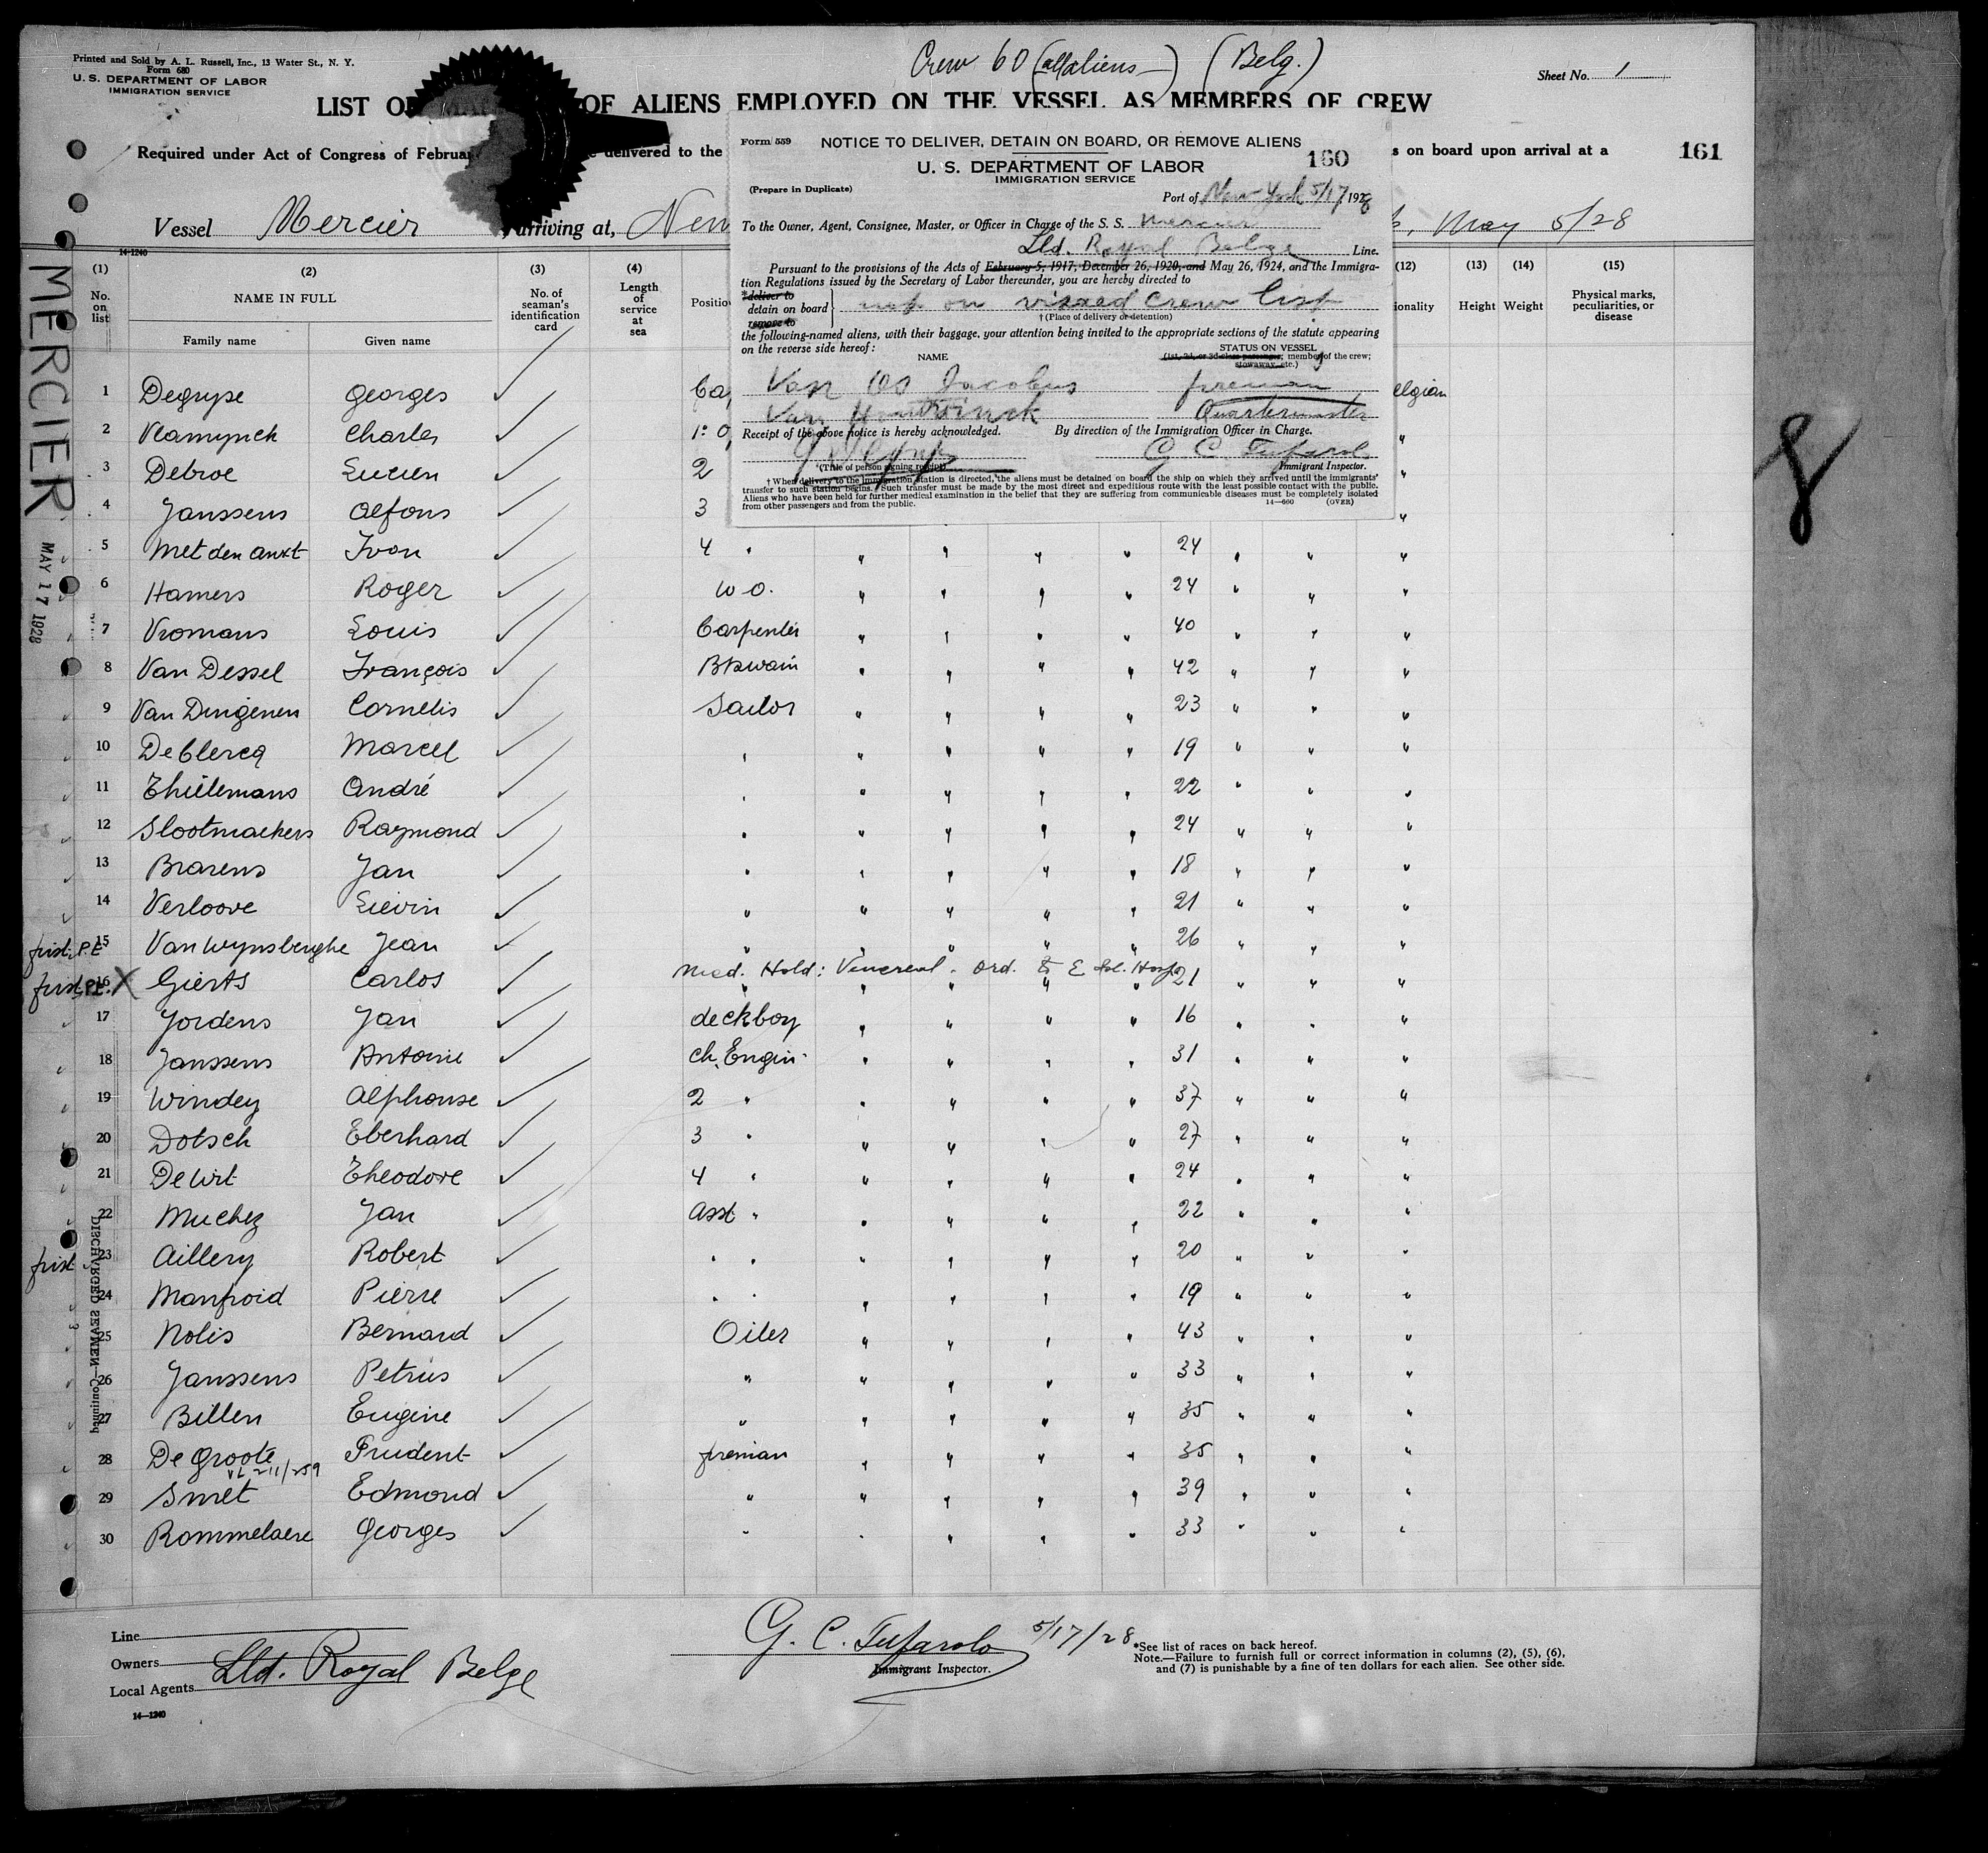 Crew 60 (all aliens—) (Belg.)
Printed and Sold by A. L. Russell, Inc., 13 Water St., N. Y.
Form 680
U. S. DEPARTMENT OF LABOR
IMMIGRATION SERVICE
Sheet No. 1
LIST OF OF ALIENS EMPLOYED ON THE VESSEL AS MEMBERS OF CREW
Required under Act of Congress of Februar delivered to the s on board upon arrival at a
161
Vessel Mercier arriving at, New May 5/28
Form 559 NOTICE TO DELIVER, DETAIN ON BOARD, OR REMOVE ALIENS
U. S. DEPARTMENT OF LABOR 160
IMMIGRATION SERVICE
(Prepare in Duplicate)
Port of New York 5/17, 1928
To the Owner, Agent, Consignee, Master, or Officer in Charge of the S. S. Mercier
Lld. Royal Belge Line.
Pursuant to the provisions of the Acts of February 5, 1917, December 26, 1920, and May 26, 1924, and the Immigra-
tion Regulations issued by the Secretary of Labor thereunder, you are hereby directed to
*deliver to
detain on board not on visaed crew list
remove to
†(Place of delivery or detention)
the following-named aliens, with their baggage, your attention being invited to the appropriate sections of the statute appearing
on the reverse side hereof:
NAME STATUS ON VESSEL
(1st, 2d, or 3d class passenger, member of the crew;
stowaway, etc.)
Van Os Jacobus fireman
Van Quartermaster
Receipt of the above notice is hereby acknowledged. By direction of the Immigration Officer in Charge.
G. C. Tufarolo
(Title of person signing receipt) Immigrant Inspector.
†When delivery to the immigration station is directed, the aliens must be detained on board the ship on which they arrived until the immigrants'
transfer to such station begins. Such transfer must be made by the most direct and expeditious route with the least possible contact with the public.
Aliens who have been held for further medical examination in the belief that they are suffering from communicable diseases must be completely isolated
from other passengers and from the public. 14—660 (OVER)
14-1240
(1) (2) (3) (4) (12) (13) (14) (15)
No. on list
NAME IN FULL
Family name Given name
No. of seaman's identification card
Length of service at sea
Positio
ionality
Height Weight
Physical marks, peculiarities, or disease
MERCIER
MAY 17 1928
8
1 Degrype Georges Ca elgian
2 Vlamynck Charles 1: o "
3 Debroe Lucien 2 "
4 Janssens Alfons 3 "
5 Met den Anxt Ivon 4 " " " " " 24 " " "
6 Hamers Roger W O. " " " " 24 " " "
7 Vromans Louis Carpenter " " " " 40 " " "
8 Van Dessel François Btswain " " " " 42 " " "
9 Van Dingenen Cornelis Sailor " " " " 23 " " "
10 De Clercq Marcel " " " " " 19 " " "
11 Thielemans André " " " " " 22 " " "
12 Slootmaekers Raymond " " " " " 24 " " "
13 Brarens Jan " " " " " 18 " " "
14 Verloove Lievin " " " " " 21 " " "
first P.E. 15 Van Wynsberghe Jean " " " " " 26 " " "
Med. Hold: Venereal. Ord. to E Isl. Hosp
first P.E. X 16 Gierts Carlos " " " " " 21 " " "
17 Jordens Jan deckboy " " " " 16 " " "
18 Janssens Antoine Ch. Engin. " " " " 31 " " "
19 Windey Alphonse 2 " " " " " 37 " " "
20 Dotsch Eberhard 3 " " " " " 27 " " "
21 De Wit Theodore 4 " " " " " 24 " " "
22 Muchez Jan Asst " " " " " 22 " " "
first 23 Aillery Robert " " " " " " 20 " " "
24 Manfroid Pierre " " " " " " 19 " " "
25 Nolis Bernard Oiler " " " " 43 " " "
26 Janssens Petrus " " " " " 33 " " "
27 Billen Eugine " " " " " 35 " " "
28 De Groote Prudent fireman " " " " 35 " " "
VL 211/259
29 Smet Edmond " " " " " 39 " " "
30 Rommelaere Georges " " " " " 33 " " "
DISCHARGED SEAMEN—Continued
Line
Owners
Local Agents Lld. Royal Belge
14—1240
G. C. Tufarolo 5/17/28
Immigrant Inspector.
*See list of races on back hereof.
Note.—Failure to furnish full or correct information in columns (2), (5), (6),
and (7) is punishable by a fine of ten dollars for each alien. See other side.